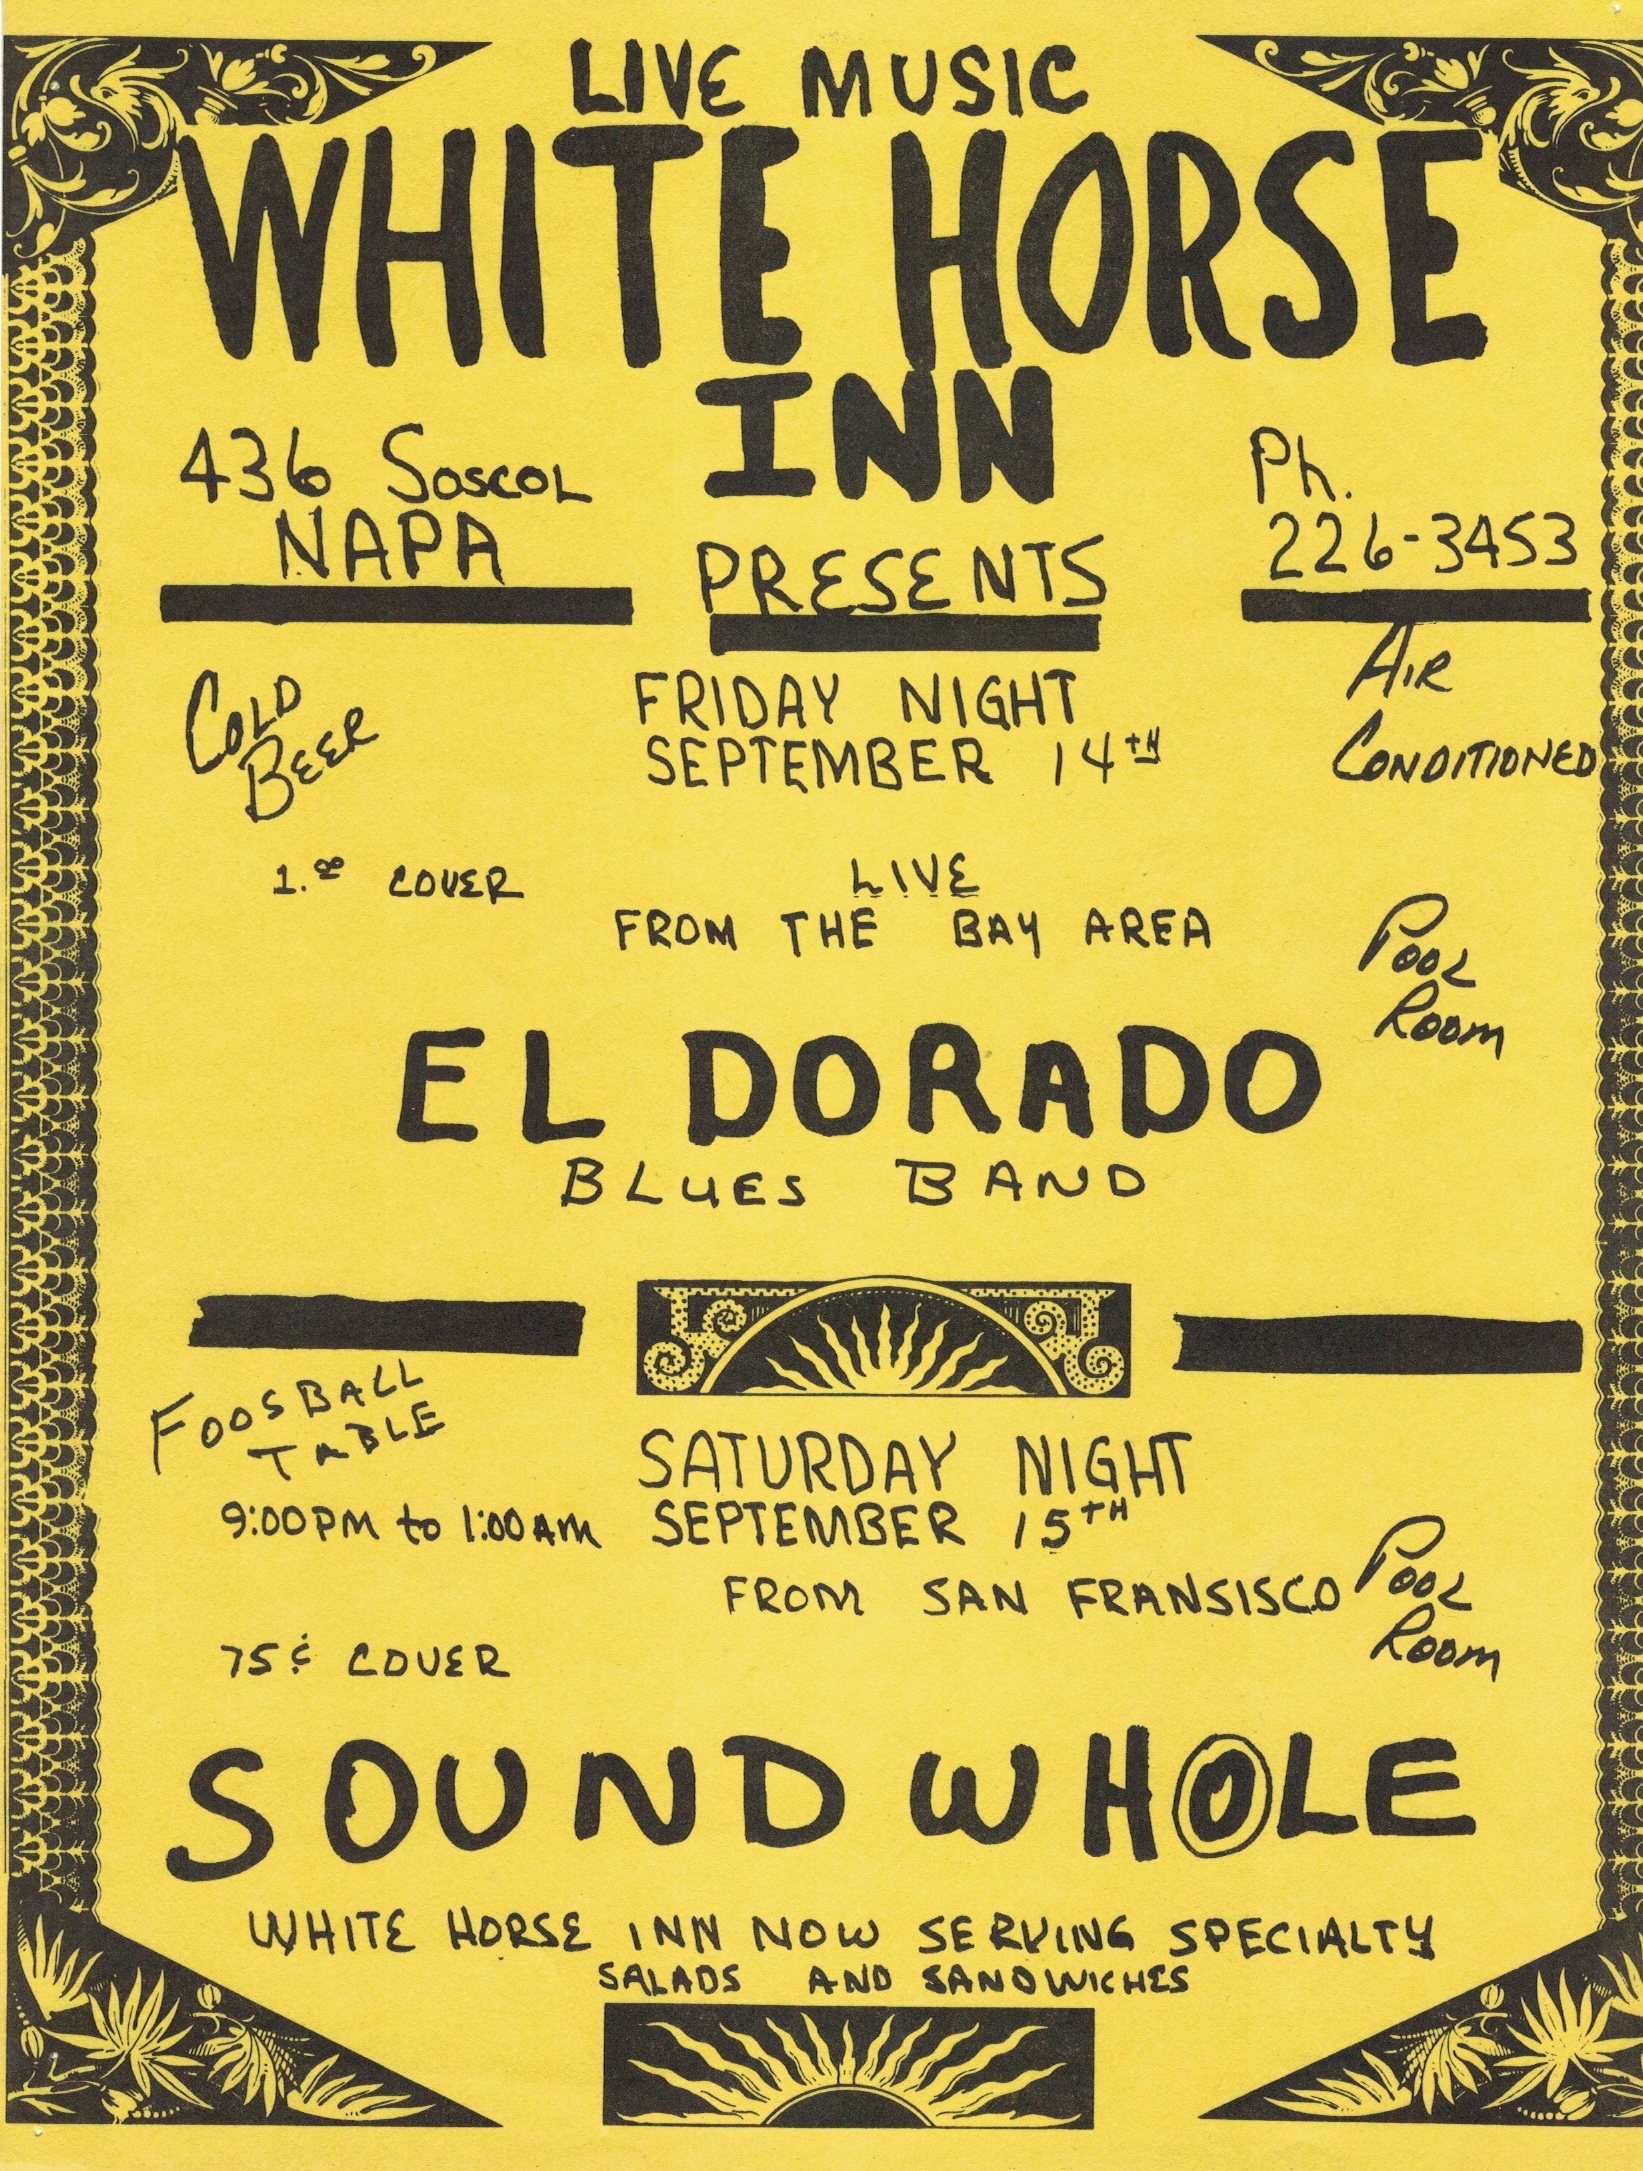 LIVE MUSIC
WHITE HORSE
INN
436 Soscol
NAPA
Ph.
226-3453
PRESENTS
COLD
BEER
FRIDAY NIGHT
SEPTEMBER 14TH
AIR
CONDITIONED
1.00 COVER
LIVE
FROM THE BAY AREA
POOL
ROOM
EL DORADO
BLUES BAND
FOOSBALL
TABLE
SATURDAY NIGHT
9:00PM to 1:00AM SEPTEMBER 15TH
FROM SAN FRANSISCO
POOL
ROOM
75¢ COVER
SOUND WHOLE
WHITE HORSE INN NOW SERVING SPECIALTY
SALADS AND SANDWICHES